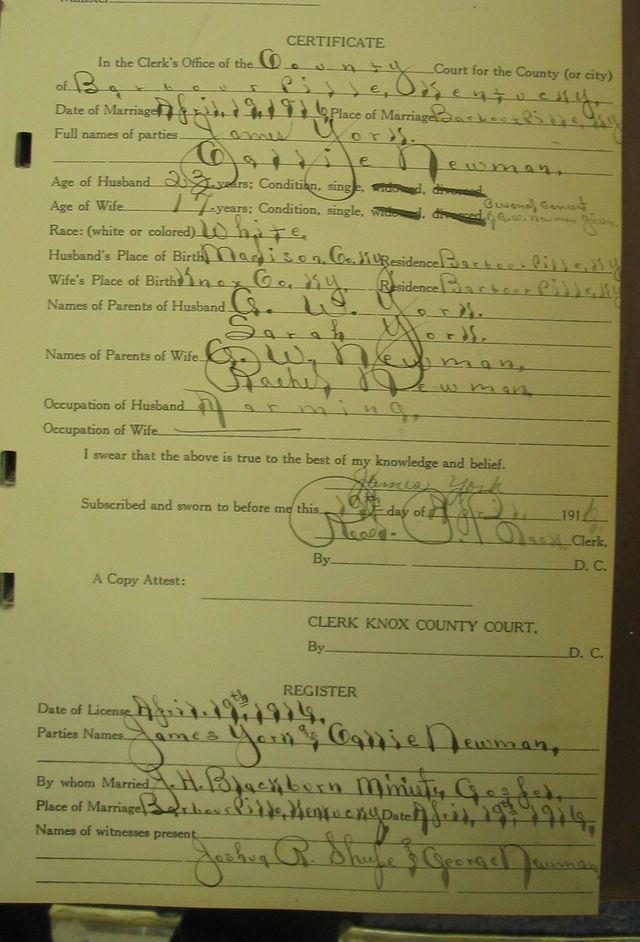 CERTIFICATE
In the Clerk's Office of the County Court for the County (or city)
of Barbourville, Kentucky.
Date of Marriage April, 19, 1916 Place of Marriage Barbourville, Ky
Full names of parties James York.
Callie Newman.
Age of Husband 23 years; Condition, single, widowed, divorced
Age of Wife 17 years; Condition, single, widowed, divorced By consent of G.W. Newman given.
Race: (white or colored) White.
Husband's Place of Birth Madison, Co. Ky Residence Barbourville, Ky
Wife's Place of Birth Knox Co. Ky. Residence Barbourville, Ky
Names of Parents of Husband G. W. York.
Sarah York.
Names of Parents of Wife G. W. Newman,
Rachel Newman
Occupation of Husband Farming.
Occupation of Wife
I swear that the above is true to the best of my knowledge and belief.
James York
Subscribed and sworn to before me this 19th day of April, 1916
Read. Clerk,
By D. C.
A Copy Attest:
CLERK KNOX COUNTY COURT.
By D. C.
REGISTER
Date of License April. 19th, 1916,
Parties Names James York & Callie Newman,
By whom Married J. H. Blackburn Ministy Gospel,
Place of Marriage Barbourville, Kentucky Date April, 19th, 1916,
Names of witnesses present
Joshua R. & George Newman